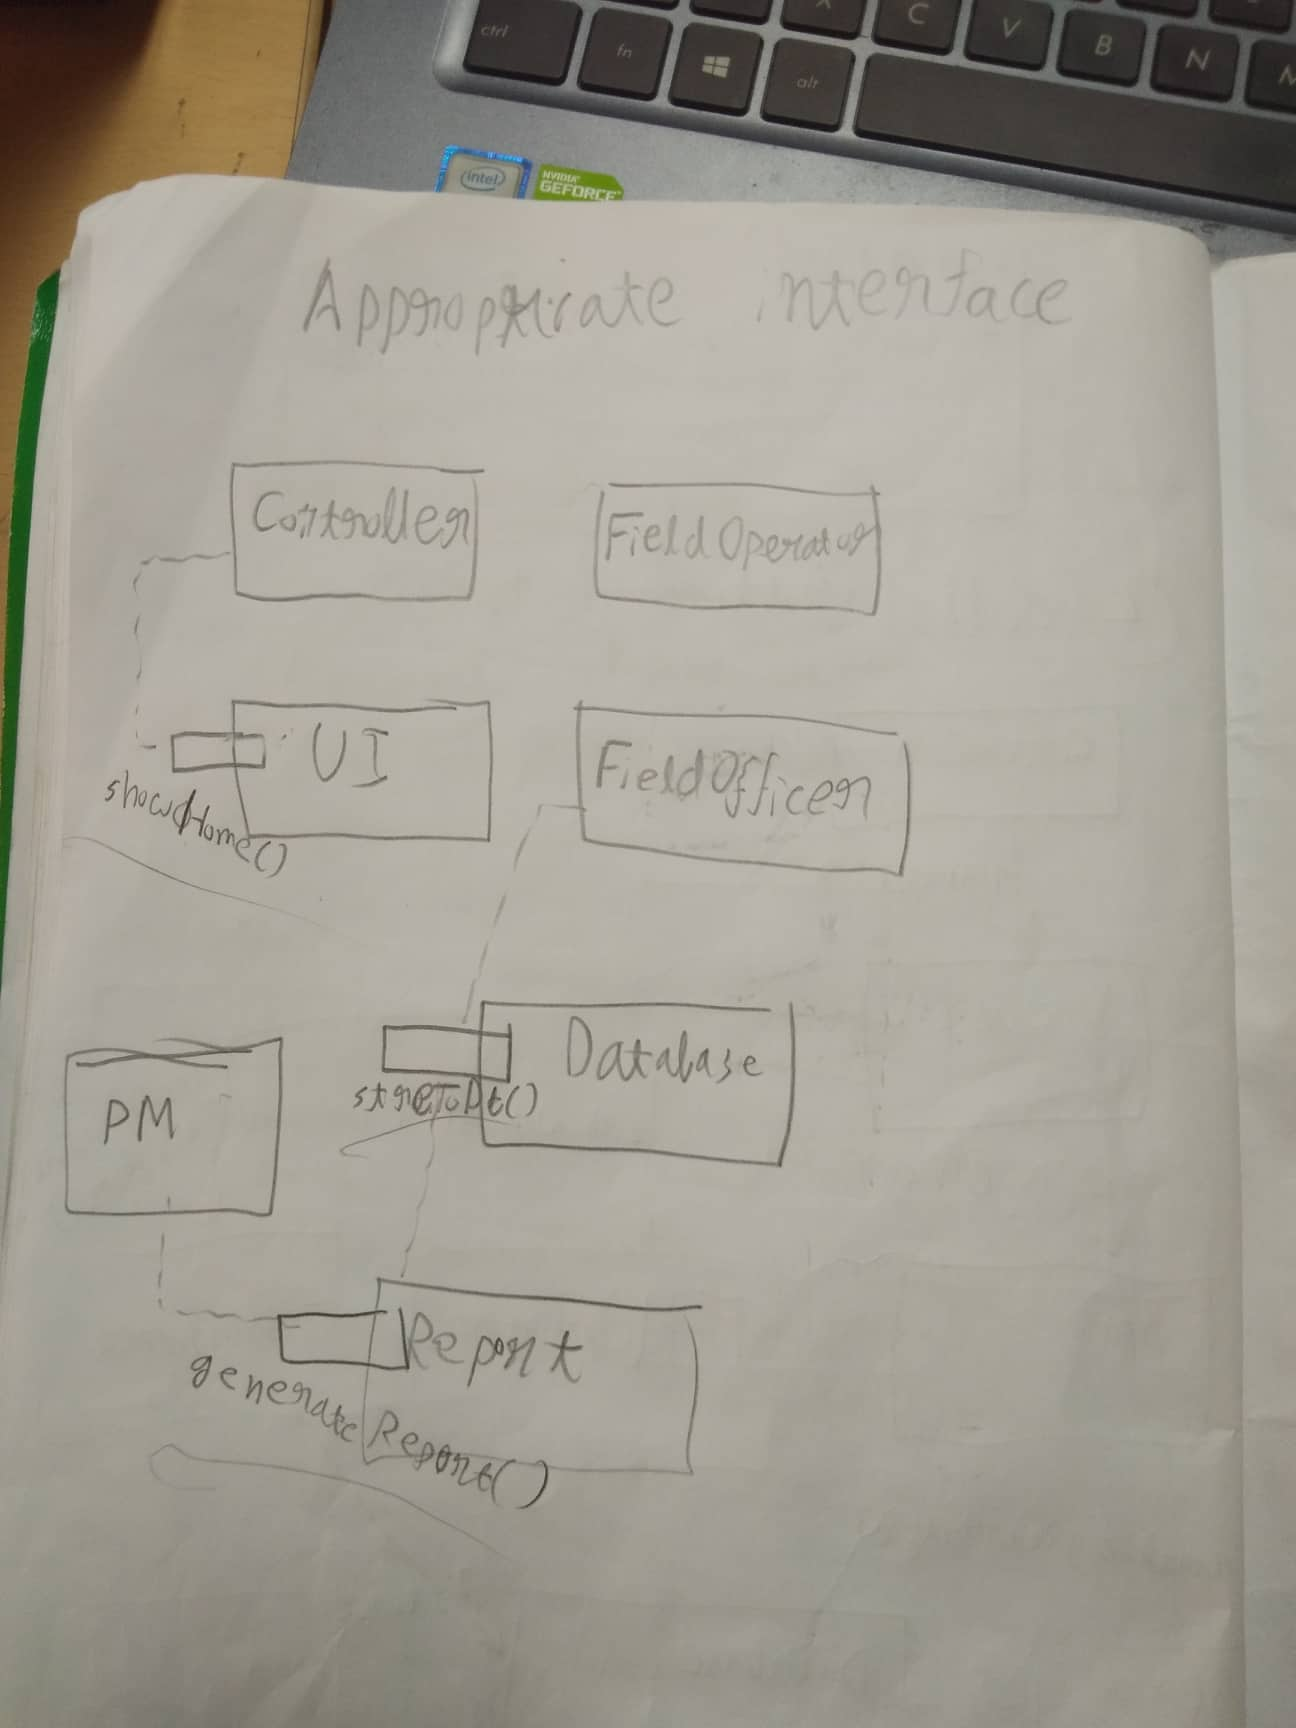 ctrl
fn
alt
X
C
V
B
N
M
intel
NVIDIA
GEFORCE
Appropriate interface
Controller
FieldOperator
UI
showHome()
FieldOfficer
Database
PM
Report
generate Report()